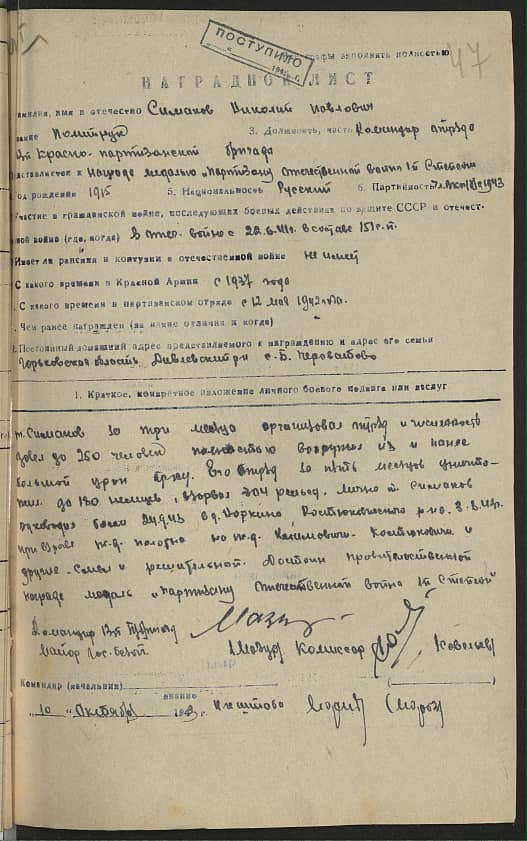 ПОСТУПИЛО
графы заполнять полностью
47
НАГРАДНОЙ ЛИСТ
амилия, имя и отчество Симаков Николай Павлович
вание Политрук 3. Должность, часть Командир отряда
13й Красно-партизанской бригады
редставляется к Награде медалью "Партизану Отечественной войны 1й Степени
од рождения 1915 5. Национальность Русский 6. Партийность 1943
Участие в гражданской войне, последующих боевых действиях по защите СССР и отечест-
ной войне (где, когда) В Оте. войне с 22.6.41г. в составе 151 с.п.
Имеет ли ранения и контузии в отечественной войне не имеет
С какого времени в Красной Армии с 1937 года
С какого времени в партизанском отряде с 12 мая 1942 года.
Чем ранее награжден (за какие отличия и когда)
Постоянный домашний адрес представляемого к награждению и адрес его семьи
Горьковская область с. Б. Череватово
1. Краткое, конкретное изложение личного боевого подвига или заслуг
т. Симаков за три месяца организовал отряд и численность
довел до 250 человек полностью вооружил их и нанес
большой урон врагу. Его отряд за пять месяцев уничто-
жил до 130 немцев, взорвал 304 рельсы. Лично т. Симаков
руководил боем в д. Норкино Костюковичского р-на 3.8.43г.
при взрыве ж.д. полотна на ж.д. Костюковичи и
другие. Смел и решительной. Достоин правительственной
награде медаль "Партизану Отечественной войны 1й Степени"
Командир 13й
майор Гос. безоп. Мазур Комиссар Ковалев
Командир (начальник)
"10" Октября 1943 г.